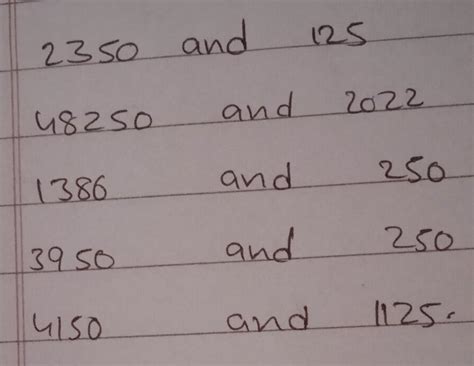 2350 and 125
48250 and 2022
1386 and 250
3950 and 250
4150 and 1125.